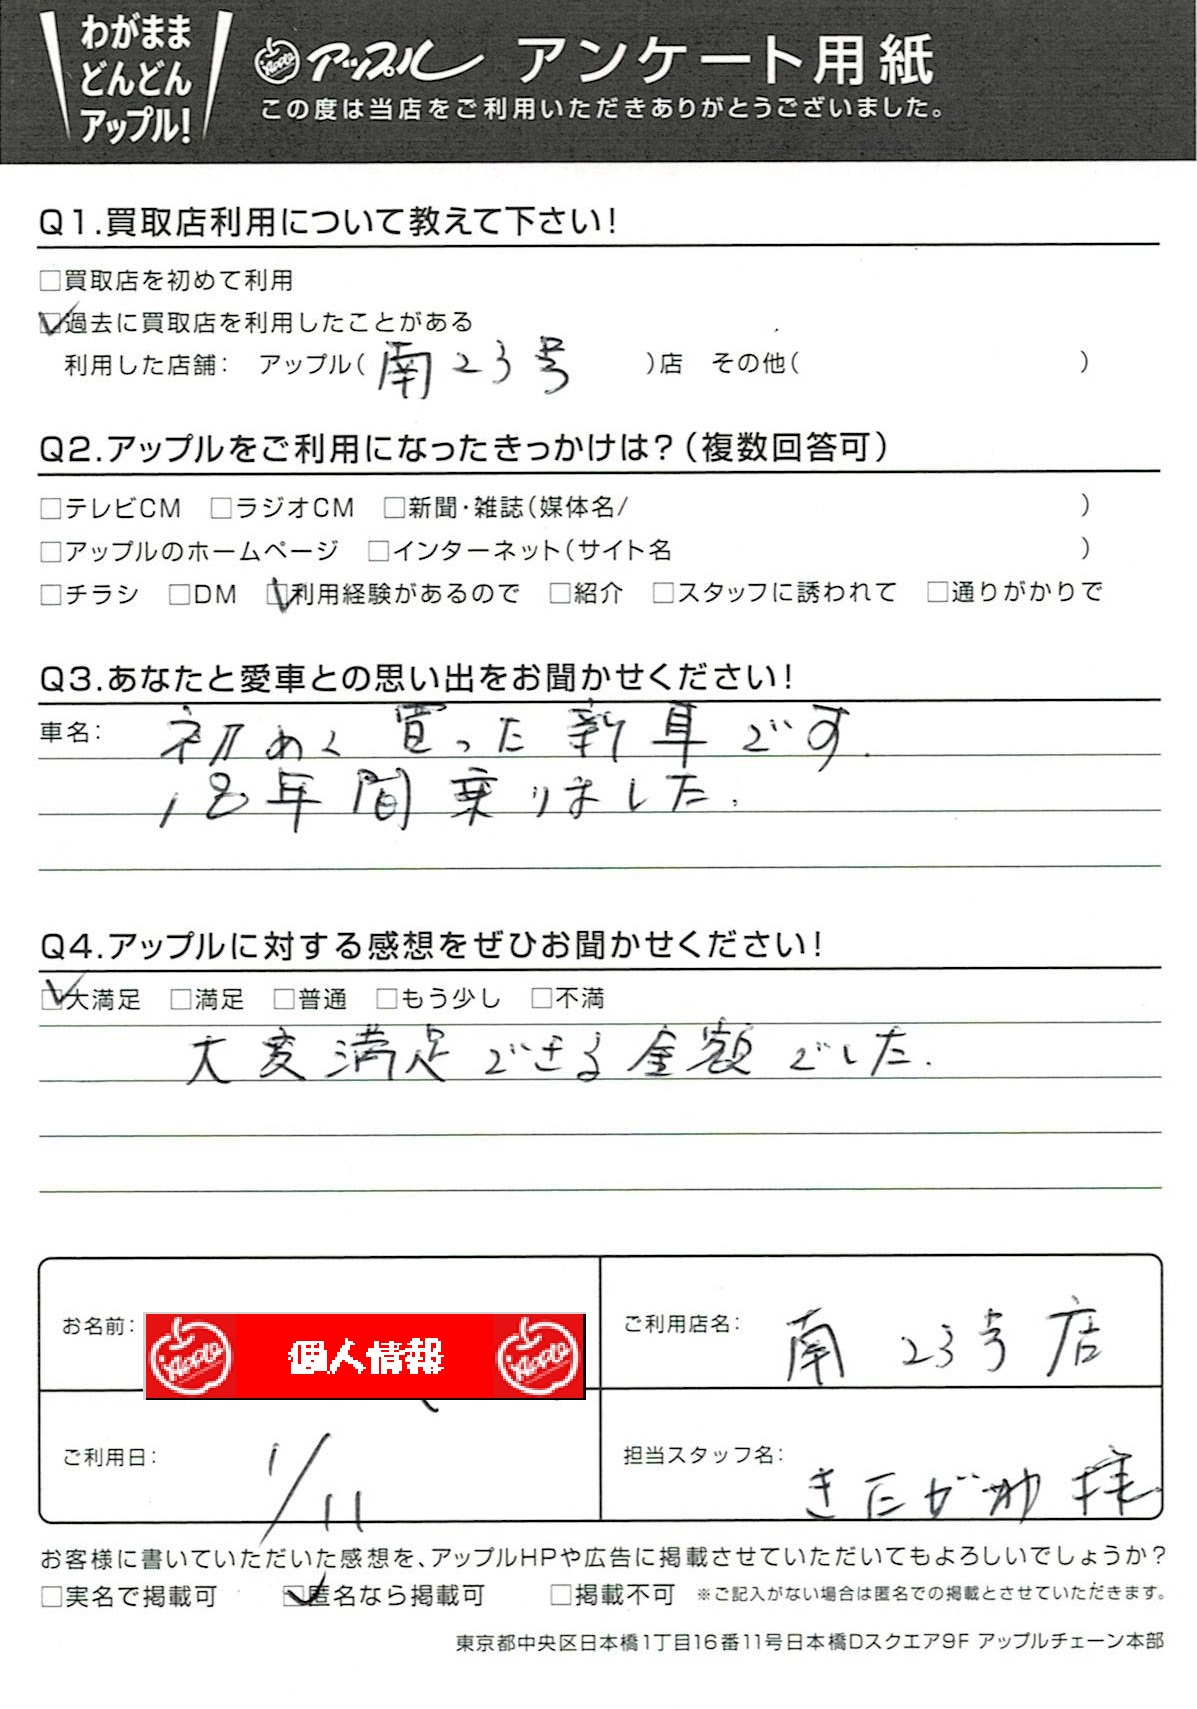 わがまま
どんどん
アップル!
Apple アップル アンケート用紙
この度は当店をご利用いただきありがとうございました。
Q1.買取店利用について教えて下さい!
□買取店を初めて利用
☑過去に買取店を利用したことがある
利用した店舗: アップル(南23号)店 その他( )
Q2.アップルをご利用になったきっかけは?(複数回答可)
□テレビCM □ラジオCM □新聞・雑誌(媒体名/ )
□アップルのホームページ □インターネット(サイト名 )
□チラシ □DM ☑利用経験があるので □紹介 □スタッフに誘われて □通りがかりで
Q3.あなたと愛車との思い出をお聞かせください!
車名: 初めて買った新車です.
18年間乗りました.
Q4.アップルに対する感想をぜひお聞かせください!
☑大満足 □満足 □普通 □もう少し □不満
大変満足できる金額でした.
お名前: Apple 個人情報 Apple
ご利用店名: 南23号店
ご利用日: 1/11
担当スタッフ名: きたがわ様
お客様に書いていただいた感想を、アップルHPや広告に掲載させていただいてもよろしいでしょうか?
□実名で掲載可 ☑匿名なら掲載可 □掲載不可 ※ご記入がない場合は匿名での掲載とさせていただきます。
東京都中央区日本橋1丁目16番11号日本橋Dスクエア9F アップルチェーン本部